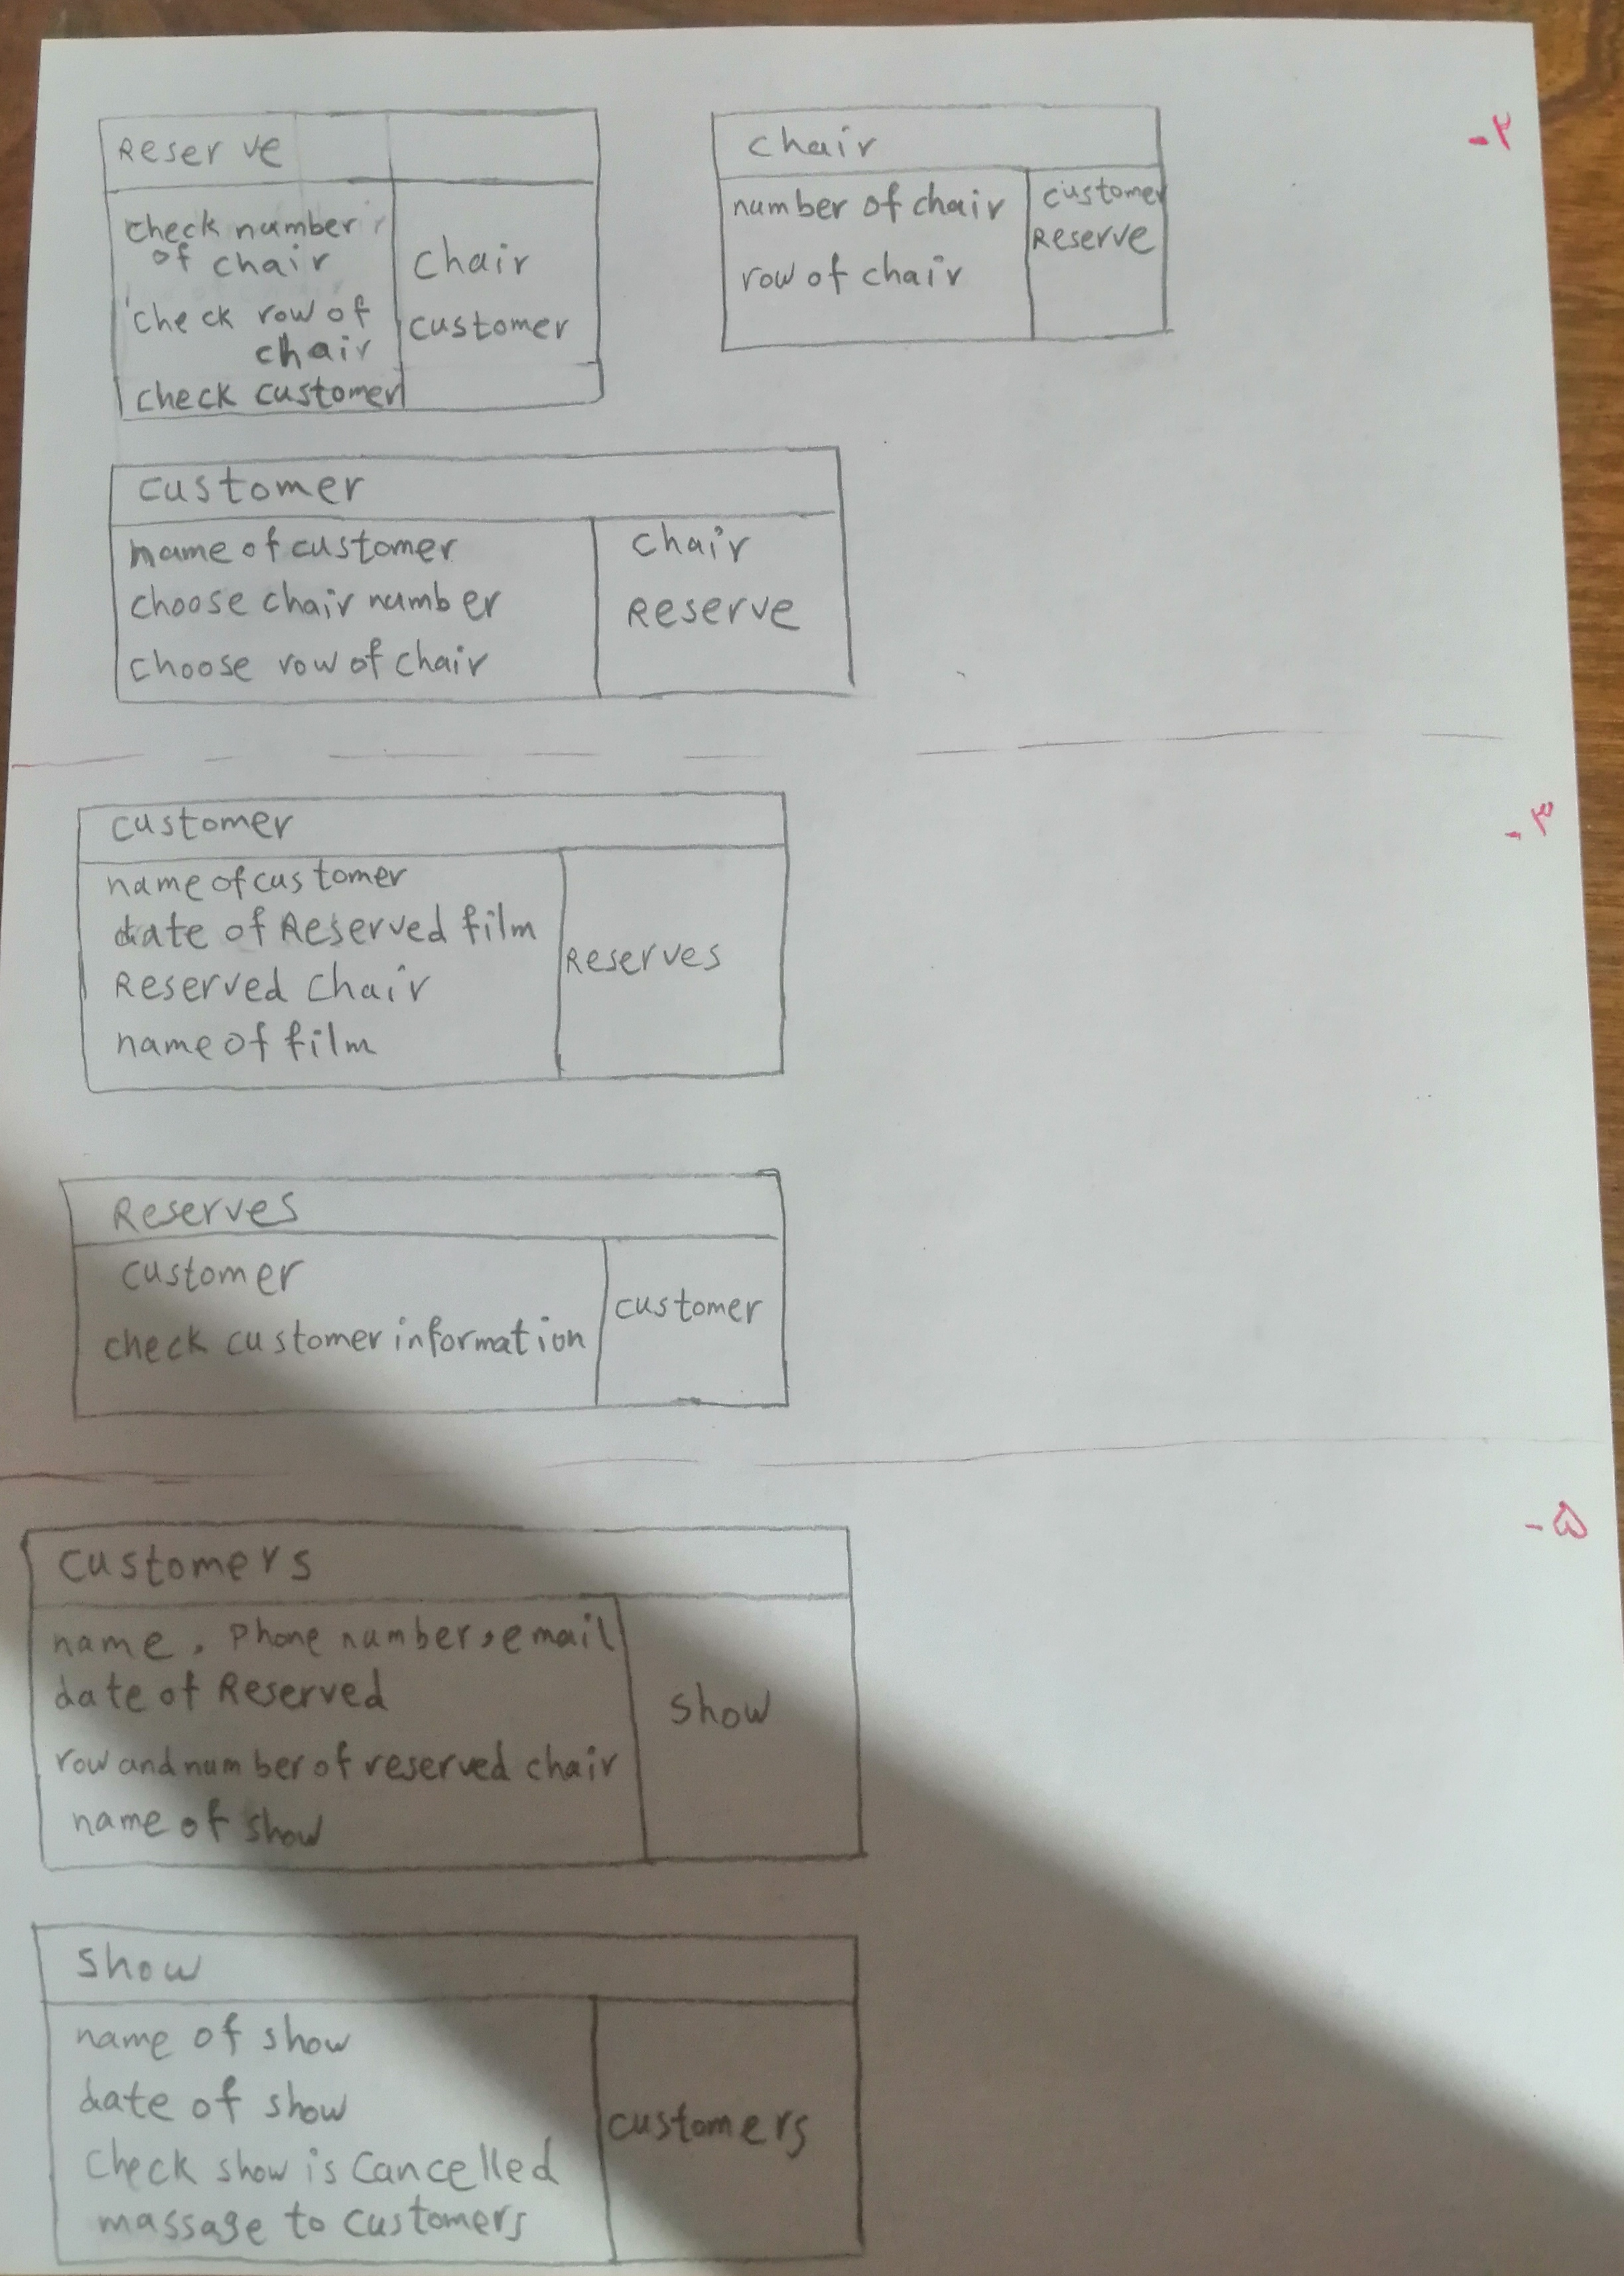 ۲-
Reserve
check number
of chair
check row of
chair
check customer
chair
customer
chair
number of chair
row of chair
customer
Reserve
customer
name of customer
choose chair number
choose row of chair
chair
Reserve
۳-
customer
name of customer
date of Reserved film
Reserved chair
name of film
Reserves
Reserves
customer
check customer information
customer
۵-
customers
name, Phone number, email
date of Reserved
row and number of reserved chair
name of show
show
show
name of show
date of show
check show is cancelled
massage to customers
customers